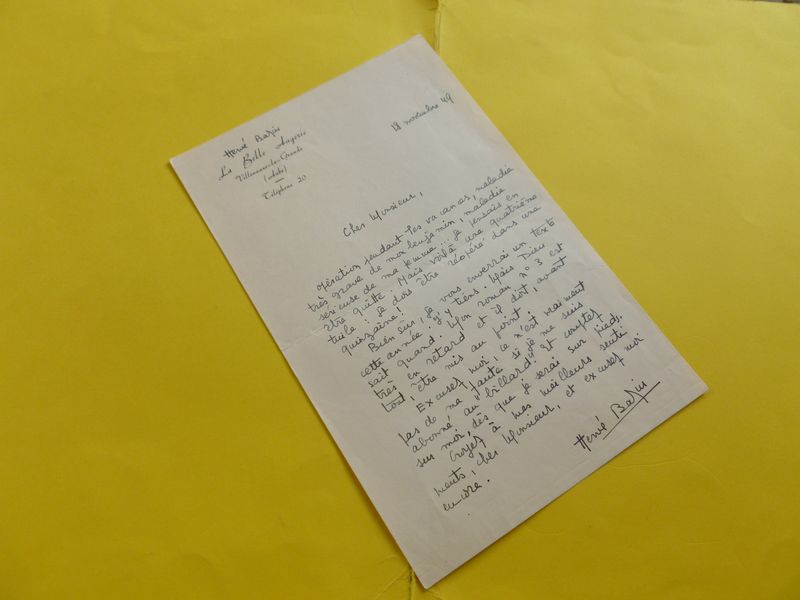 Hervé Bazin
La Belle Angerie
Villenauxe-la-Grande
(Aube)
Téléphone 20
18 novembre 49
Cher Monsieur,
Opération pendant les vacances, maladie
très grave de mon benjamin, maladie
sérieuse de ma femme... Je pensais en
être quitte. Mais voilà une quatrième
tuile : je dois être réopéré dans une
quinzaine !
Bien sûr, je vous enverrai un texte
cette année. J'y tiens. Mais Dieu
sait quand. Mon roman n° 3 est
très en retard et il doit, avant
tout, être mis au point.
Excusez moi, ce n'est vraiment
pas de ma faute si je me suis
abonné "au billard". Et comptez
sur moi, dès que je serai sur pieds.
Croyez à mes meilleurs senti
ments, cher Monsieur, et excusez moi
encore.
Hervé Bazin